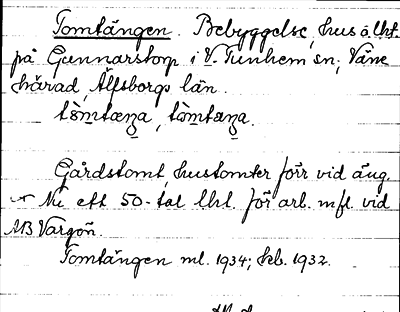 Tomtängen. Bebyggelse, hus o. lht.
på Gunnarstorp i V. Tunhem sn, Väne
härad, Älfsborgs län.
tòmtæŋa, tòmtæŋa.
Gårdstomt, hustomter förr vid äng
Nu ett 50-tal lht. för arb. mfl. vid
AB Vargön.
Tomtängen ml. 1934; hsb. 1932.